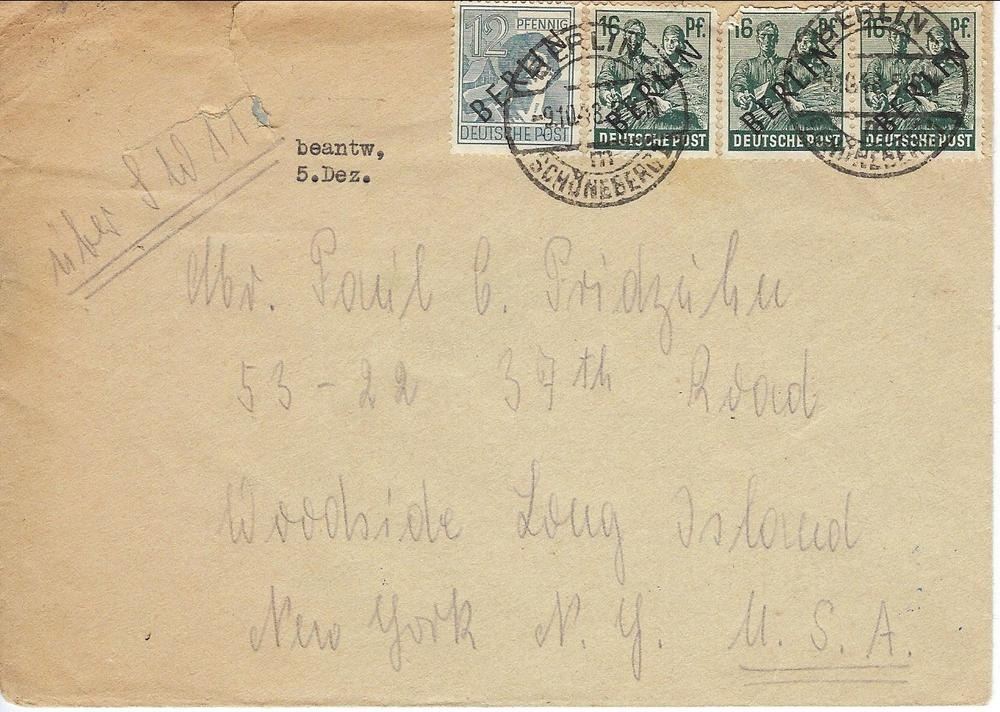 12 PFENNIG
BERLIN
DEUTSCHE POST
16 Pf.
BERLIN
DEUTSCHE POST
16 Pf.
BERLIN
DEUTSCHE POST
16 Pf.
BERLIN
DEUTSCHE POST
BERLIN
-9.10.48
m
SCHÖNEBERG 1
BERLIN
SCHÖNEBERG
über SW 11
beantw,
5.Dez.
Mr. Paul C. Pridzuhn
53-22 37th Road
Woodside Long Island
New York N.Y. U.S.A.